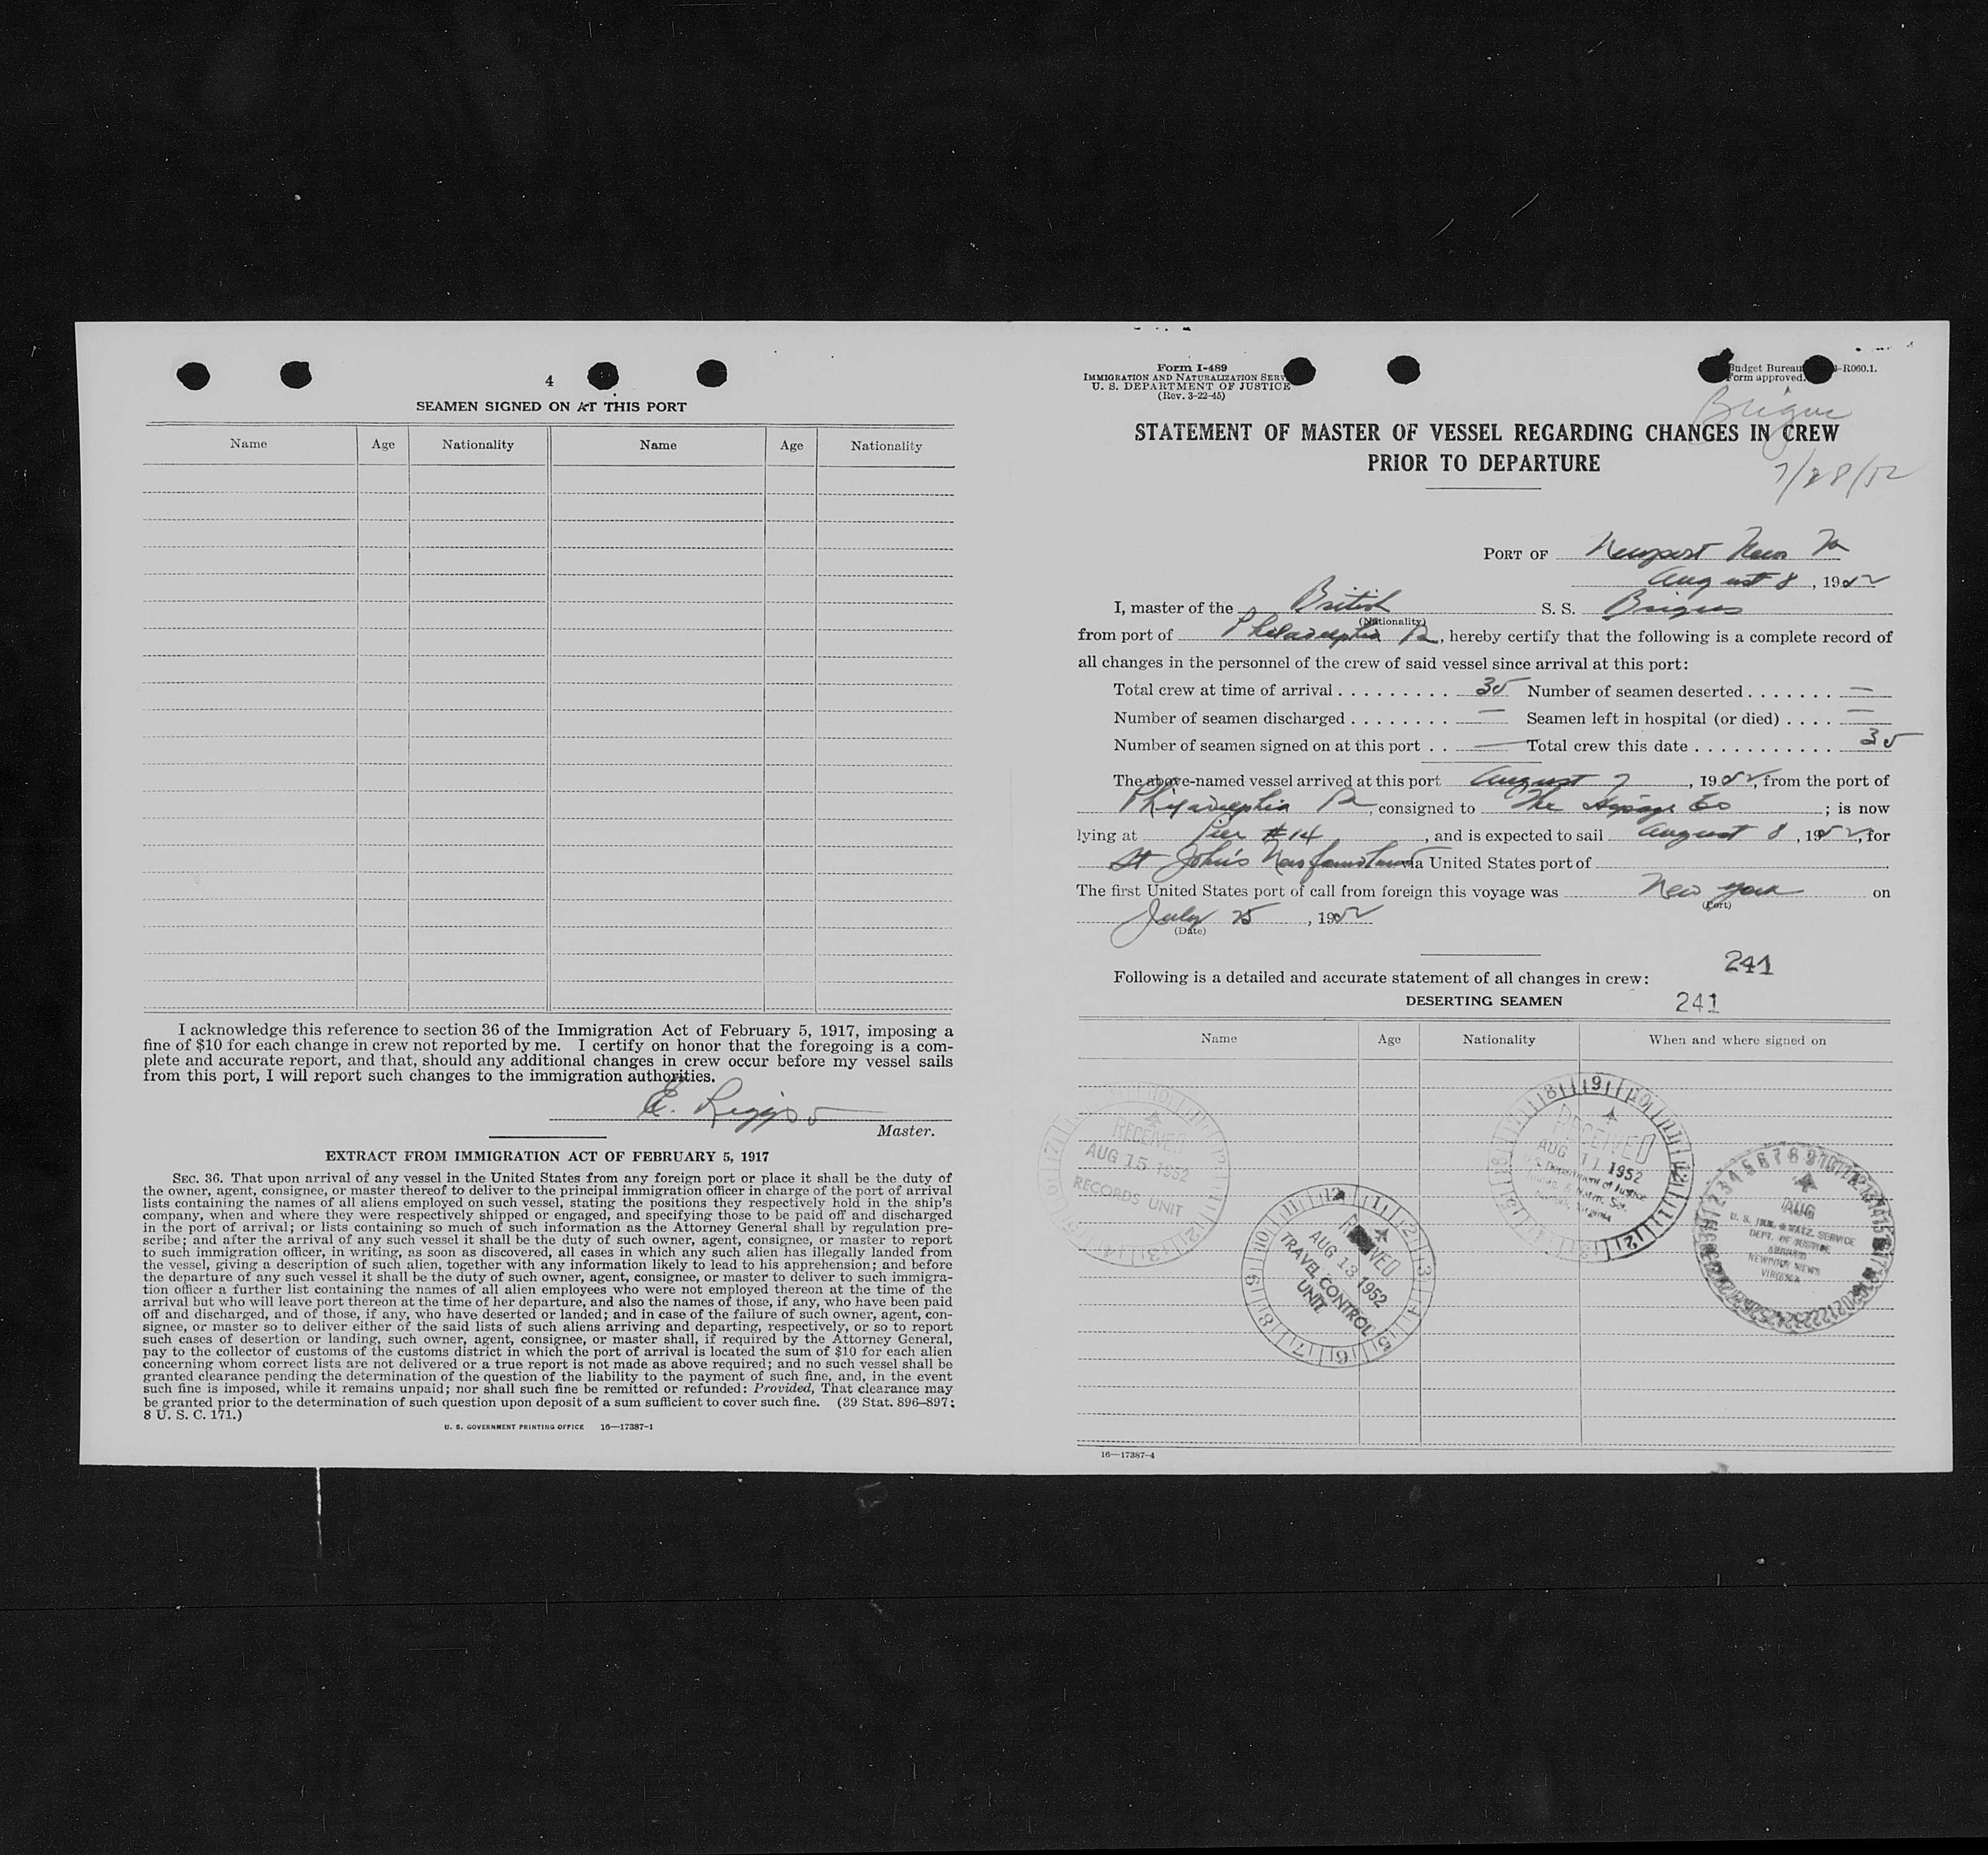 4
SEAMEN SIGNED ON AT THIS PORT
Name Age Nationality Name Age Nationality
I acknowledge this reference to section 36 of the Immigration Act of February 5, 1917, imposing a
fine of $10 for each change in crew not reported by me. I certify on honor that the foregoing is a com-
plete and accurate report, and that, should any additional changes in crew occur before my vessel sails
from this port, I will report such changes to the immigration authorities.
E. Riggs
Master.
EXTRACT FROM IMMIGRATION ACT OF FEBRUARY 5, 1917
SEC. 36. That upon arrival of any vessel in the United States from any foreign port or place it shall be the duty of
the owner, agent, consignee, or master thereof to deliver to the principal immigration officer in charge of the port of arrival
lists containing the names of all aliens employed on such vessel, stating the positions they respectively hold in the ship's
company, when and where they were respectively shipped or engaged, and specifying those to be paid off and discharged
in the port of arrival; or lists containing so much of such information as the Attorney General shall by regulation pre-
scribe; and after the arrival of any such vessel it shall be the duty of such owner, agent, consignee, or master to report
to such immigration officer, in writing, as soon as discovered, all cases in which any such alien has illegally landed from
the vessel, giving a description of such alien, together with any information likely to lead to his apprehension; and before
the departure of any such vessel it shall be the duty of such owner, agent, consignee, or master to deliver to such immigra-
tion officer a further list containing the names of all alien employees who were not employed thereon at the time of the
arrival but who will leave port thereon at the time of her departure, and also the names of those, if any, who have been paid
off and discharged, and of those, if any, who have deserted or landed; and in case of the failure of such owner, agent, con-
signee, or master so to deliver either of the said lists of such aliens arriving and departing, respectively, or so to report
such cases of desertion or landing, such owner, agent, consignee, or master shall, if required by the Attorney General,
pay to the collector of customs of the customs district in which the port of arrival is located the sum of $10 for each alien
concerning whom correct lists are not delivered or a true report is not made as above required; and no such vessel shall be
granted clearance pending the determination of the question of the liability to the payment of such fine, and, in the event
such fine is imposed, while it remains unpaid; nor shall such fine be remitted or refunded: Provided, That clearance may
be granted prior to the determination of such question upon deposit of a sum sufficient to cover such fine. (39 Stat. 896–897;
8 U. S. C. 171.)
U. S. GOVERNMENT PRINTING OFFICE 16—17387-1
Form I-489
IMMIGRATION AND NATURALIZATION SERV
U. S. DEPARTMENT OF JUSTICE
(Rev. 3-22-45)
Budget Bureau -R060.1.
Form approved.
STATEMENT OF MASTER OF VESSEL REGARDING CHANGES IN CREW
PRIOR TO DEPARTURE
7/28/52
PORT OF Newport News Va
August 8, 1952
I, master of the British S. S. Brigus
(Nationality)
from port of Philadelphia Pa, hereby certify that the following is a complete record of
all changes in the personnel of the crew of said vessel since arrival at this port:
Total crew at time of arrival 35 Number of seamen deserted —
Number of seamen discharged — Seamen left in hospital (or died) —
Number of seamen signed on at this port — Total crew this date 35
The above-named vessel arrived at this port August 7, 1952, from the port of
Philadelphia Pa, consigned to The Co; is now
lying at Pier #14, and is expected to sail August 8, 1952, for
St John's Newfoundland via United States port of
The first United States port of call from foreign this voyage was New York on
(Port)
July 25, 1952
(Date)
241
Following is a detailed and accurate statement of all changes in crew:
DESERTING SEAMEN 241
Name Age Nationality When and where signed on
RECEIVED
AUG 15 1952
RECORDS UNIT
RECEIVED
AUG 13 1952
TRAVEL CONTROL
UNIT
RECEIVED
AUG 11 1952
U. S. Department of Justice
Immig. & Natzn. Ser.
Norfolk, Virginia
AUG
U. S. IMM. & NATZ. SERVICE
DEPT. OF JUSTICE
NEWPORT NEWS
VIRGINIA
16—17387-4